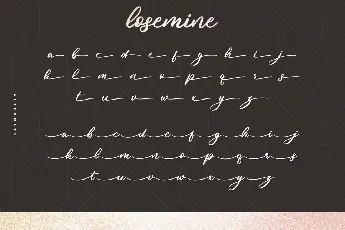 losemine
a b c d e f g h i j
k l m n o p q r s
t u v w x y z
a b c d e f g h i j
k l m n o p q r s
t u v w x y z